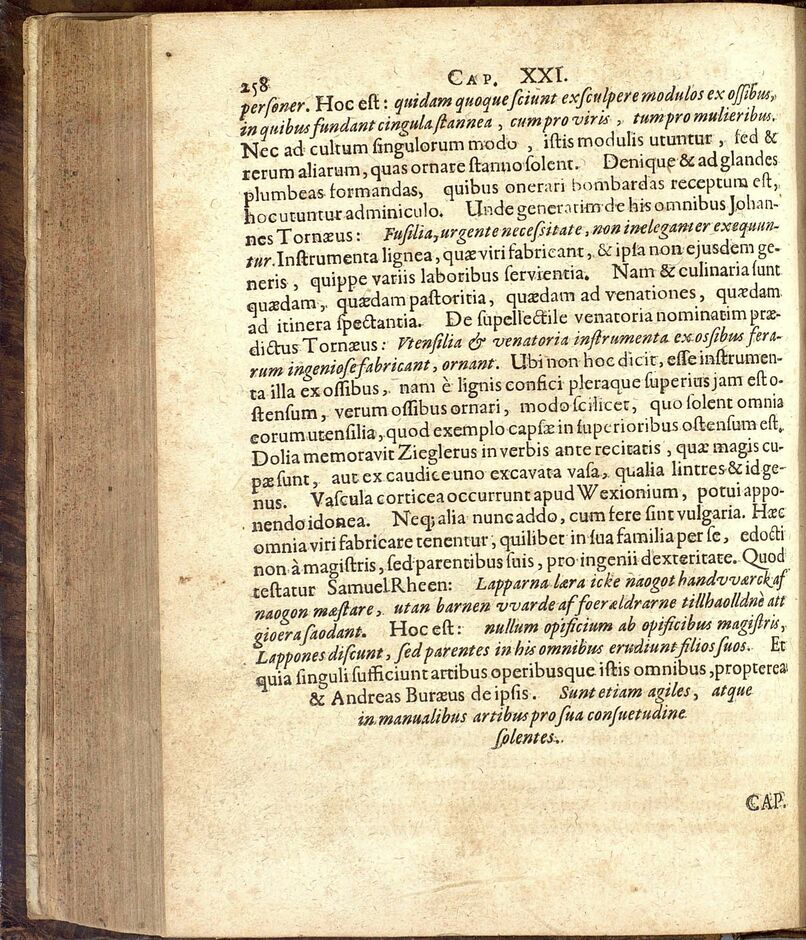 258 CAP. XXI.
perſoner. Hoc eſt: quidam quoque ſciunt exſculpere modulos ex oſſibus,
in quibus fundant cingula ſtannea, cum pro viris, tum pro mulieribus.
Nec ad cultum ſingulorum modo, iſtis modulis utuntur, ſed &
rerum aliarum, quas ornare ſtanno ſolent. Denique & ad glandes
plumbeas formandas, quibus onerari bombardas receptum eſt,
hoc utuntur adminiculo. Unde generatim de his omnibus Johan-
nes Tornæus: Fuſilia, urgente neceſsitate, non ineleganter exequun-
tur. Inſtrumenta lignea, quæ viri fabricant, & ipſa non ejusdem ge-
neris, quippe variis laboribus ſervientia. Nam & culinaria ſunt
quædam, quædam paſtoritia, quædam ad venationes, quædam
ad itinera ſpectantia. De ſupellectile venatoria nominatim præ-
dictus Tornæus: Vtenſilia & venatoria inſtrumenta ex oſsibus fera-
rum ingenioſe fabricant, ornant. Ubi non hoc dicit, eſſe inſtrumen-
ta illa ex oſſibus, nam è lignis confici pleraque ſuperius jam eſt o-
ſtenſum, verum oſſibus ornari, modo ſcilicet, quo ſolent omnia
eorum utenſilia, quod exemplo capſæ in ſuperioribus oſtenſum eſt.
Dolia memoravit Zieglerus in verbis ante recitatis, quæ magis cu-
pæ ſunt, aut ex caudice uno excavata vaſa, qualia lintres & id ge-
nus. Vaſcula corticea occurrunt apud Wexionium, potui appo-
nendo idonea. Neq; alia nunc addo, cum fere ſint vulgaria. Hæc
omnia viri fabricare tenentur, quilibet in ſua familia per ſe, edocti
non à magiſtris, ſed parentibus ſuis, pro ingenii dexteritate. Quod
teſtatur Samuel Rheen: Lapparna læra icke naogot handvværck af
naogon mæſtare, utan barnen vvarde af foerældrarne tillhaolldnè att
gioera ſaodant. Hoc eſt: nullum opificium ab opificibus magiſtris,
Lappones diſcunt, ſed parentes in his omnibus erudiunt filios ſuos. Et
quia ſinguli ſufficiunt artibus operibusque iſtis omnibus, propterea
& Andreas Buræus de ipſis. Sunt etiam agiles, atque
in manualibus artibus pro ſua conſuetudine
ſolentes.
CAP.